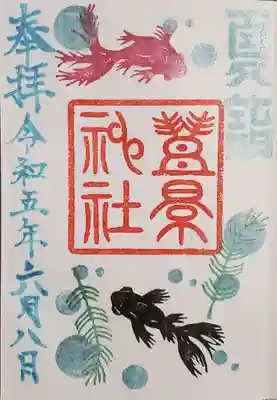 夏詣
豊景
神社
奉拝令和五年六月八日